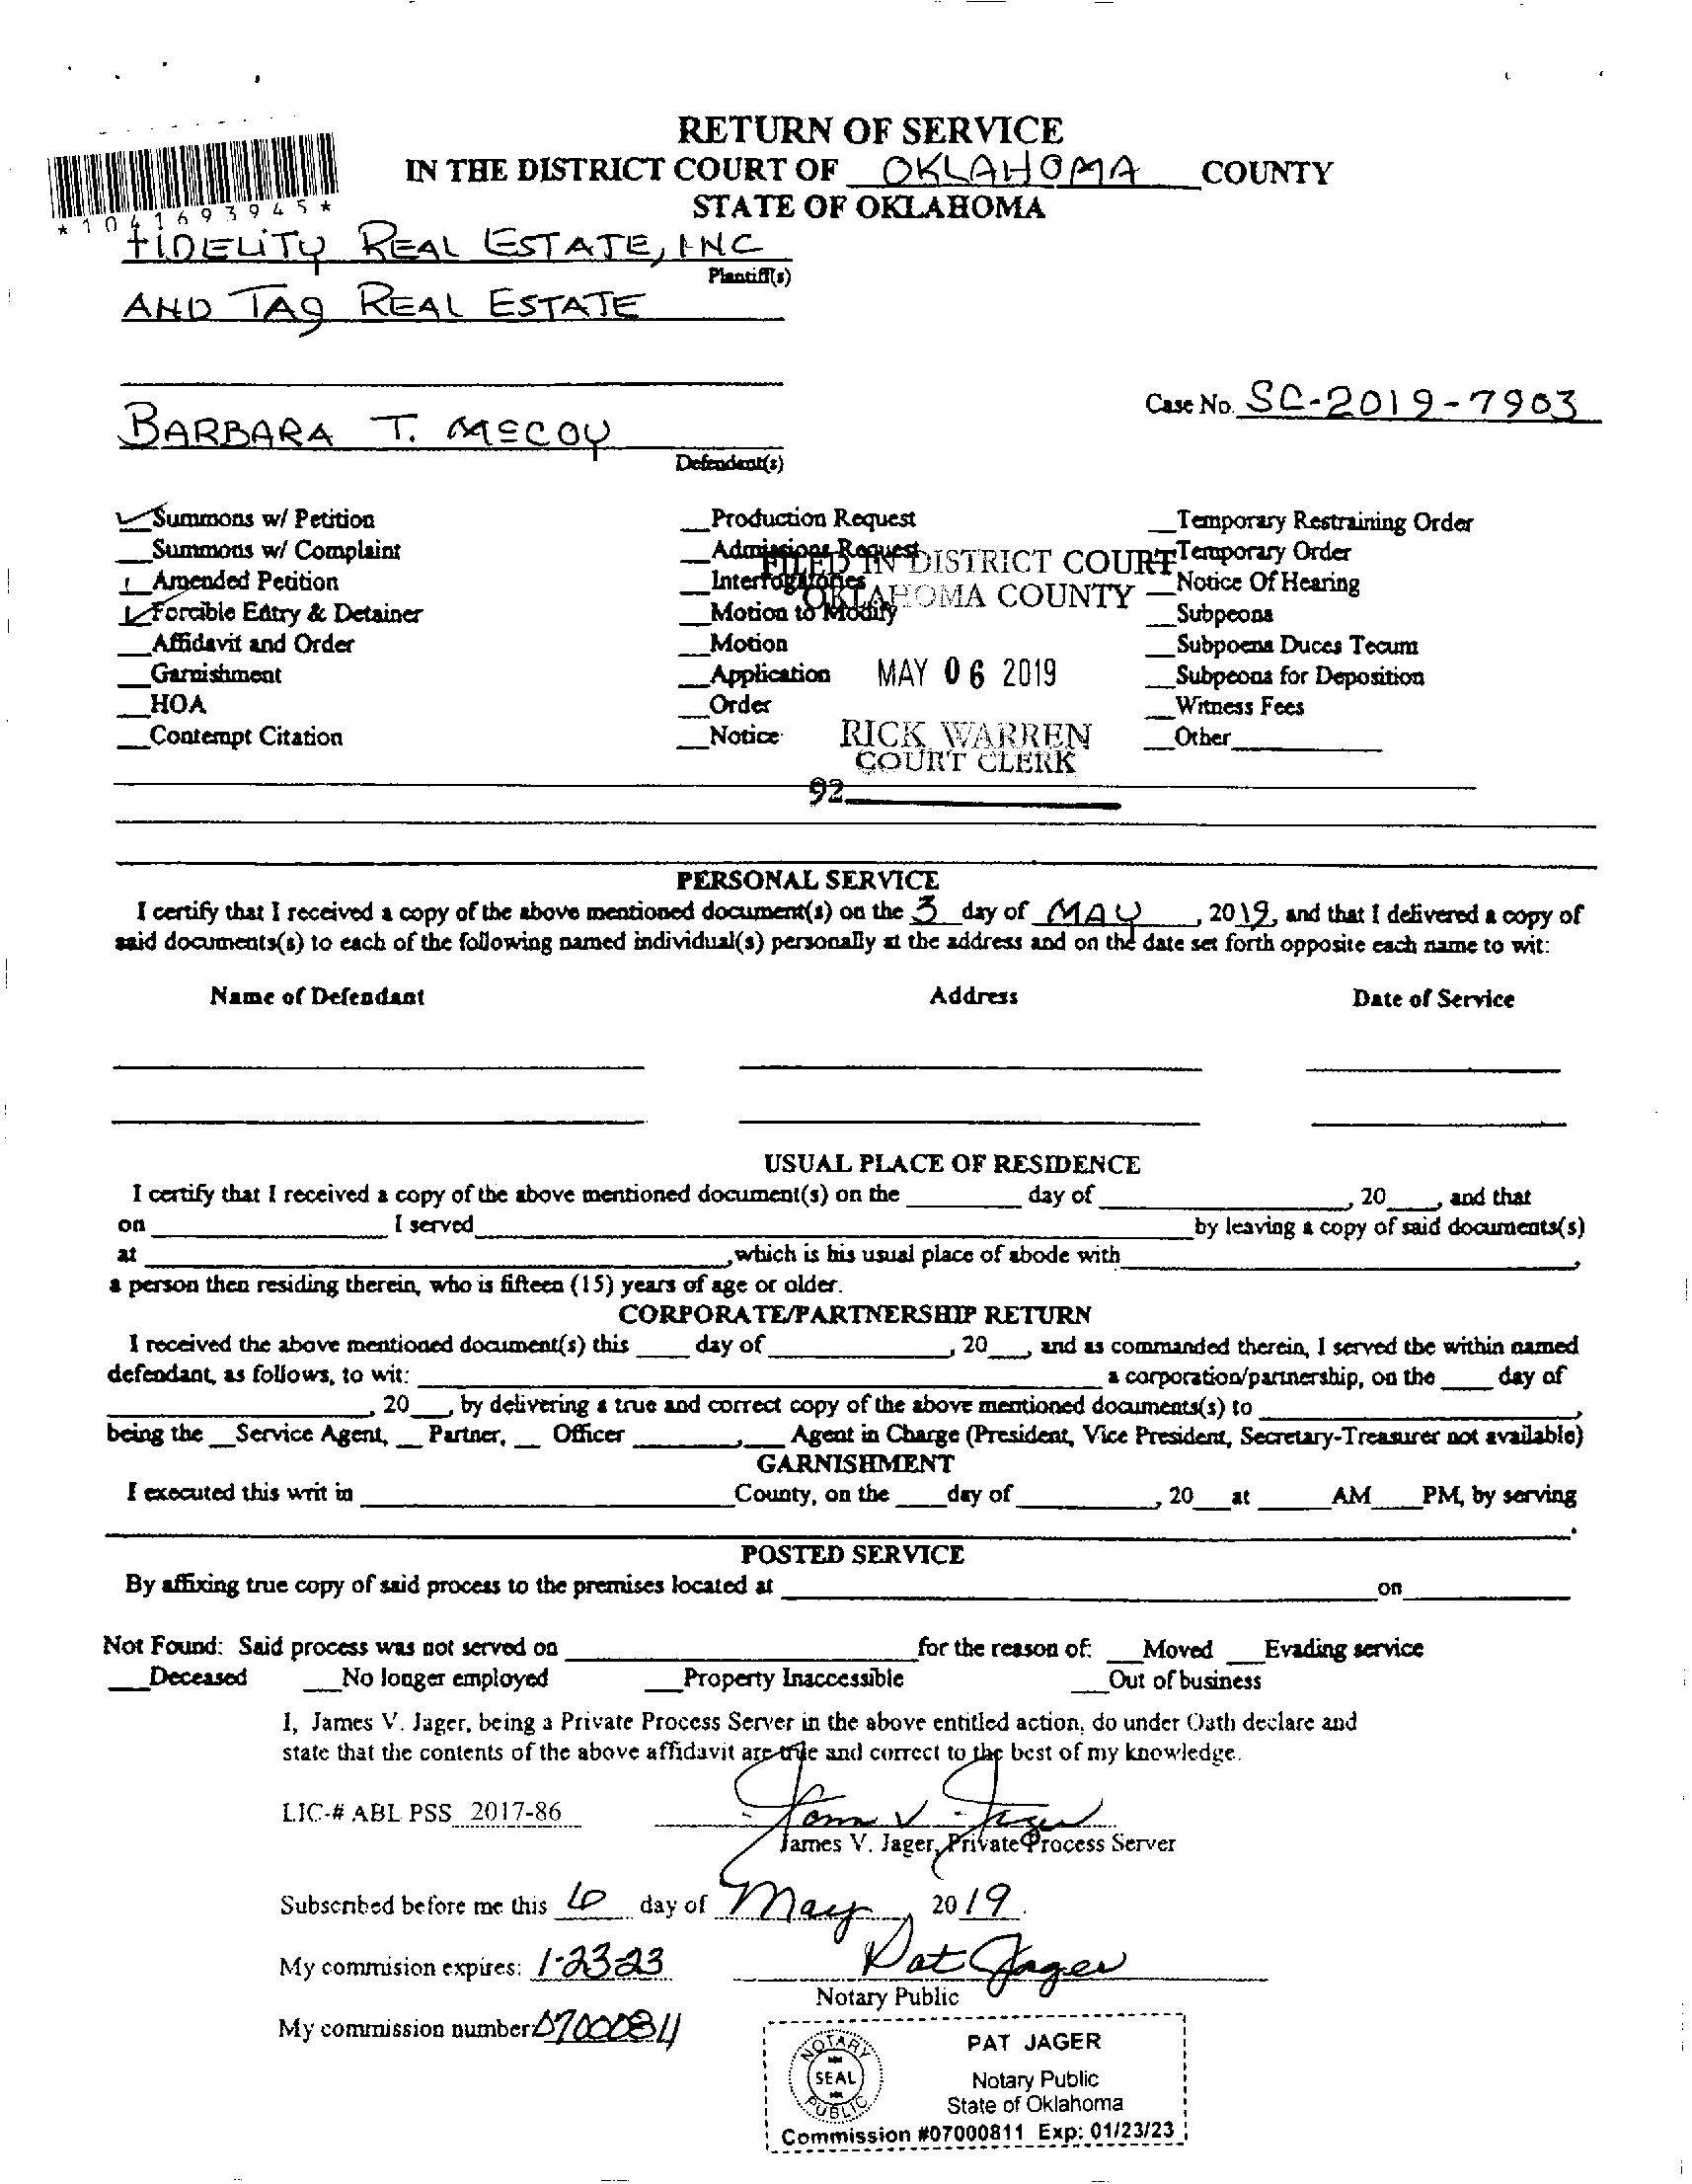 RETURN OF SERVICE
IN THE DISTRICT COURT OF OKLAHOMA COUNTY
STATE OF OKLAHOMA
*1041693945*
FIDELITY REAL ESTATE, INC
Plantiff(s)
AND TAG REAL ESTATE
Case No. SC-2019-7903
BARBARA T. McCOY
Defendant(s)
Summons w/ Petition __Production Request __Temporary Restraining Order
__Summons w/ Complaint __Admissions Request __Temporary Order
__Amended Petition __Interrogatories __Notice Of Hearing
Forcible Entry & Detainer __Motion to Modify __Subpeona
__Affidavit and Order __Motion __Subpoena Duces Tecum
__Garnishment __Application __Subpeona for Deposition
__HOA __Order __Witness Fees
__Contempt Citation __Notice __Other____
FILED IN DISTRICT COURT
OKLAHOMA COUNTY
MAY 06 2019
RICK WARREN
COURT CLERK
92____
PERSONAL SERVICE
I certify that I received a copy of the above mentioned document(s) on the 3 day of MAY, 2019, and that I delivered a copy of
said documents(s) to each of the following named individual(s) personally at the address and on the date set forth opposite each name to wit:
Name of Defendant Address Date of Service
USUAL PLACE OF RESIDENCE
I certify that I received a copy of the above mentioned document(s) on the ____ day of ____, 20__, and that
on ____ I served____ by leaving a copy of said documents(s)
at ____, which is his usual place of abode with____,
a person then residing therein, who is fifteen (15) years of age or older.
CORPORATE/PARTNERSHIP RETURN
I received the above mentioned document(s) this ____ day of ____, 20__, and as commanded therein, I served the within named
defendant, as follows, to wit: ____ a corporation/partnership, on the ____ day of
____, 20__, by delivering a true and correct copy of the above mentioned documents(s) to ____,
being the __Service Agent, __ Partner, __ Officer ____,____ Agent in Charge (President, Vice President, Secretary-Treasurer not available)
GARNISHMENT
I executed this writ in ____County, on the ____day of____, 20__at ____AM____PM, by serving
____.
POSTED SERVICE
By affixing true copy of said process to the premises located at ____on____
Not Found: Said process was not served on ____for the reason of: __Moved __Evading service
__Deceased __No longer employed __Property Inaccessible __Out of business
I, James V. Jager, being a Private Process Server in the above entitled action, do under Oath declare and
state that the contents of the above affidavit are true and correct to the best of my knowledge.
LIC-# ABL PSS 2017-86
James V. Jager, Private Process Server
Subscribed before me this 6 day of May, 2019.
My commision expires: 1-23-23 Pat Jager
Notary Public
My commission number 07000811
NOTARY
SEAL
PUBLIC
PAT JAGER
Notary Public
State of Oklahoma
Commission #07000811 Exp: 01/23/23